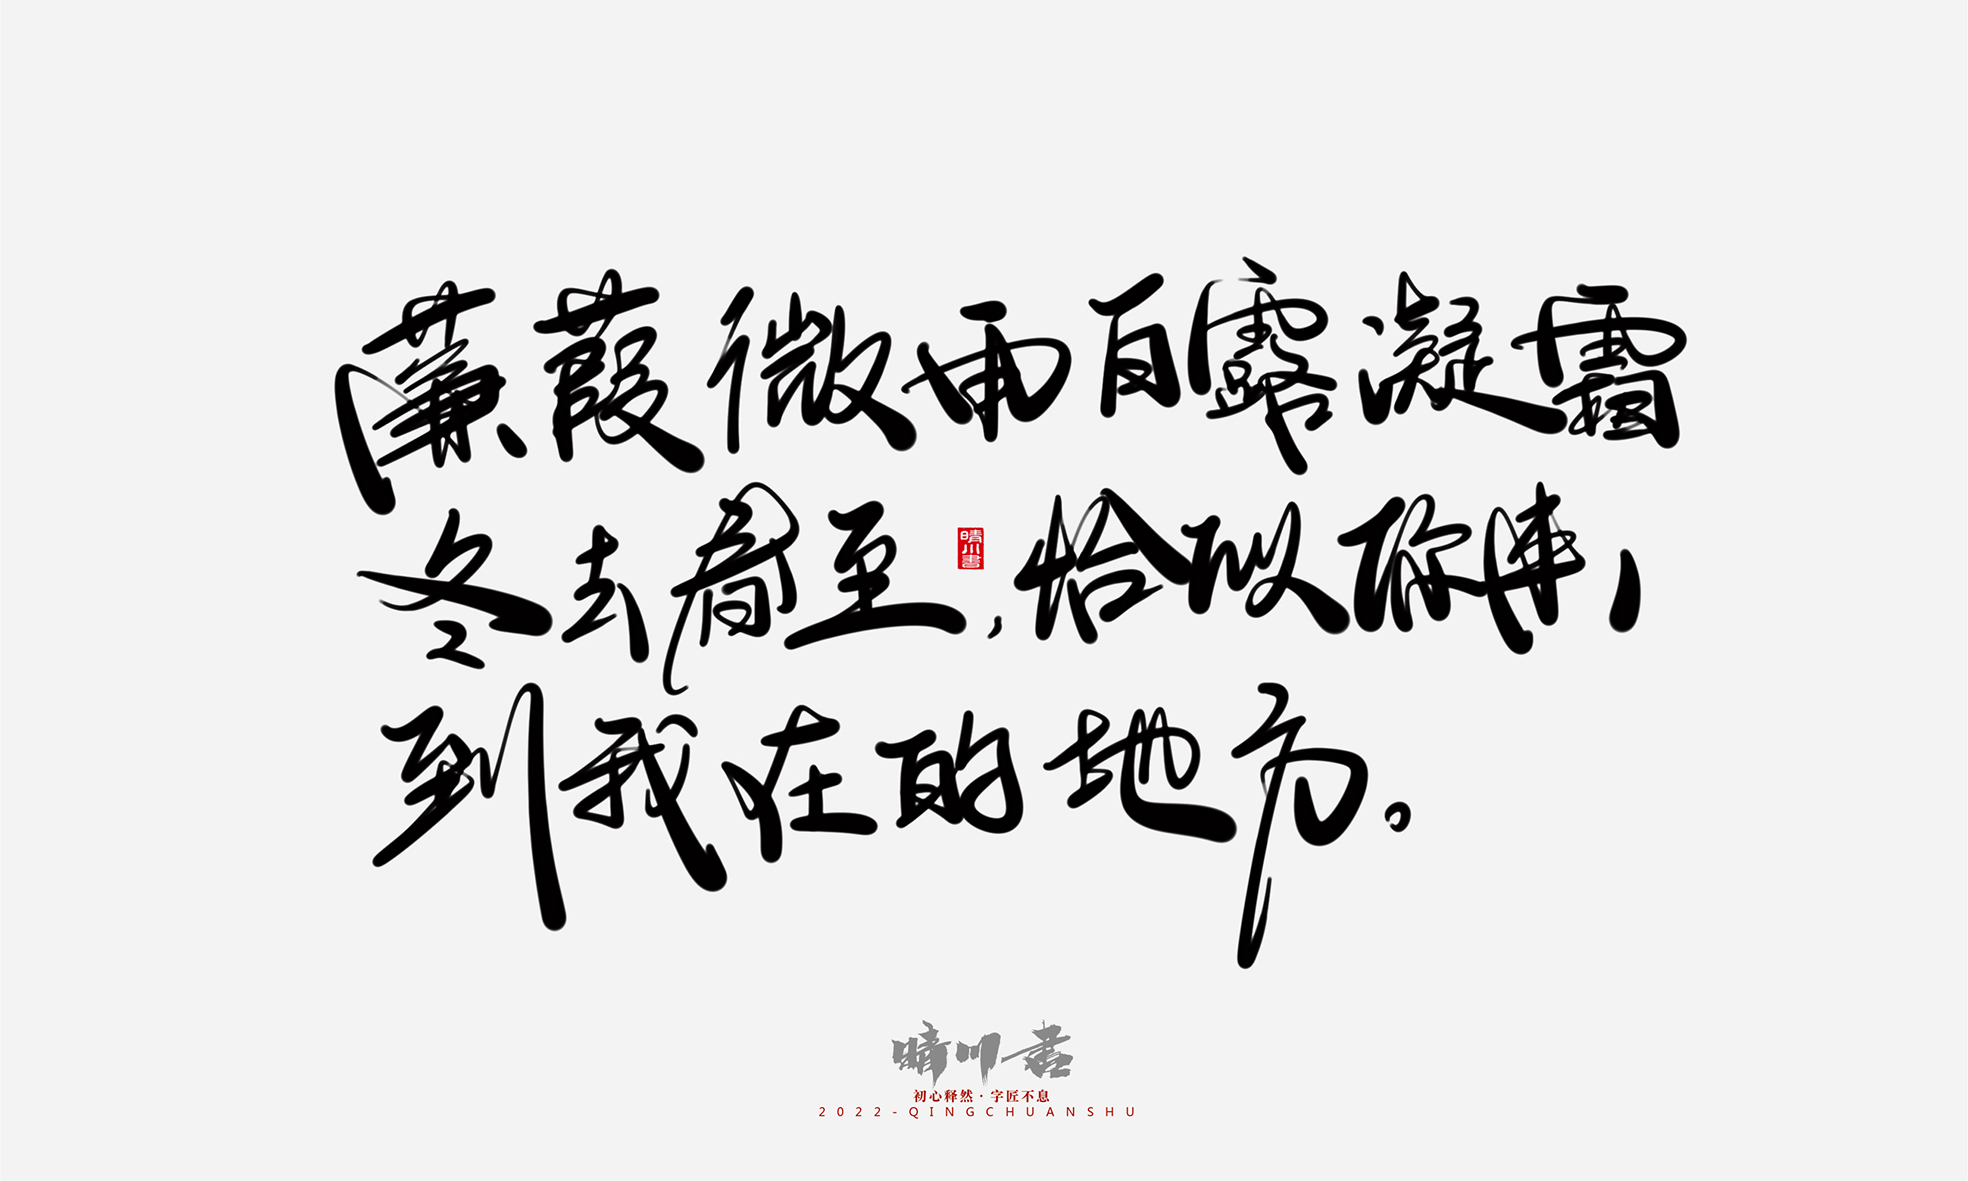 蒹葭微雨白露凝霜
冬去春至,恰似你来,
到我在的地方。
晴川書
晴川书
初心释然·字匠不息
2022-QINGCHUANSHU